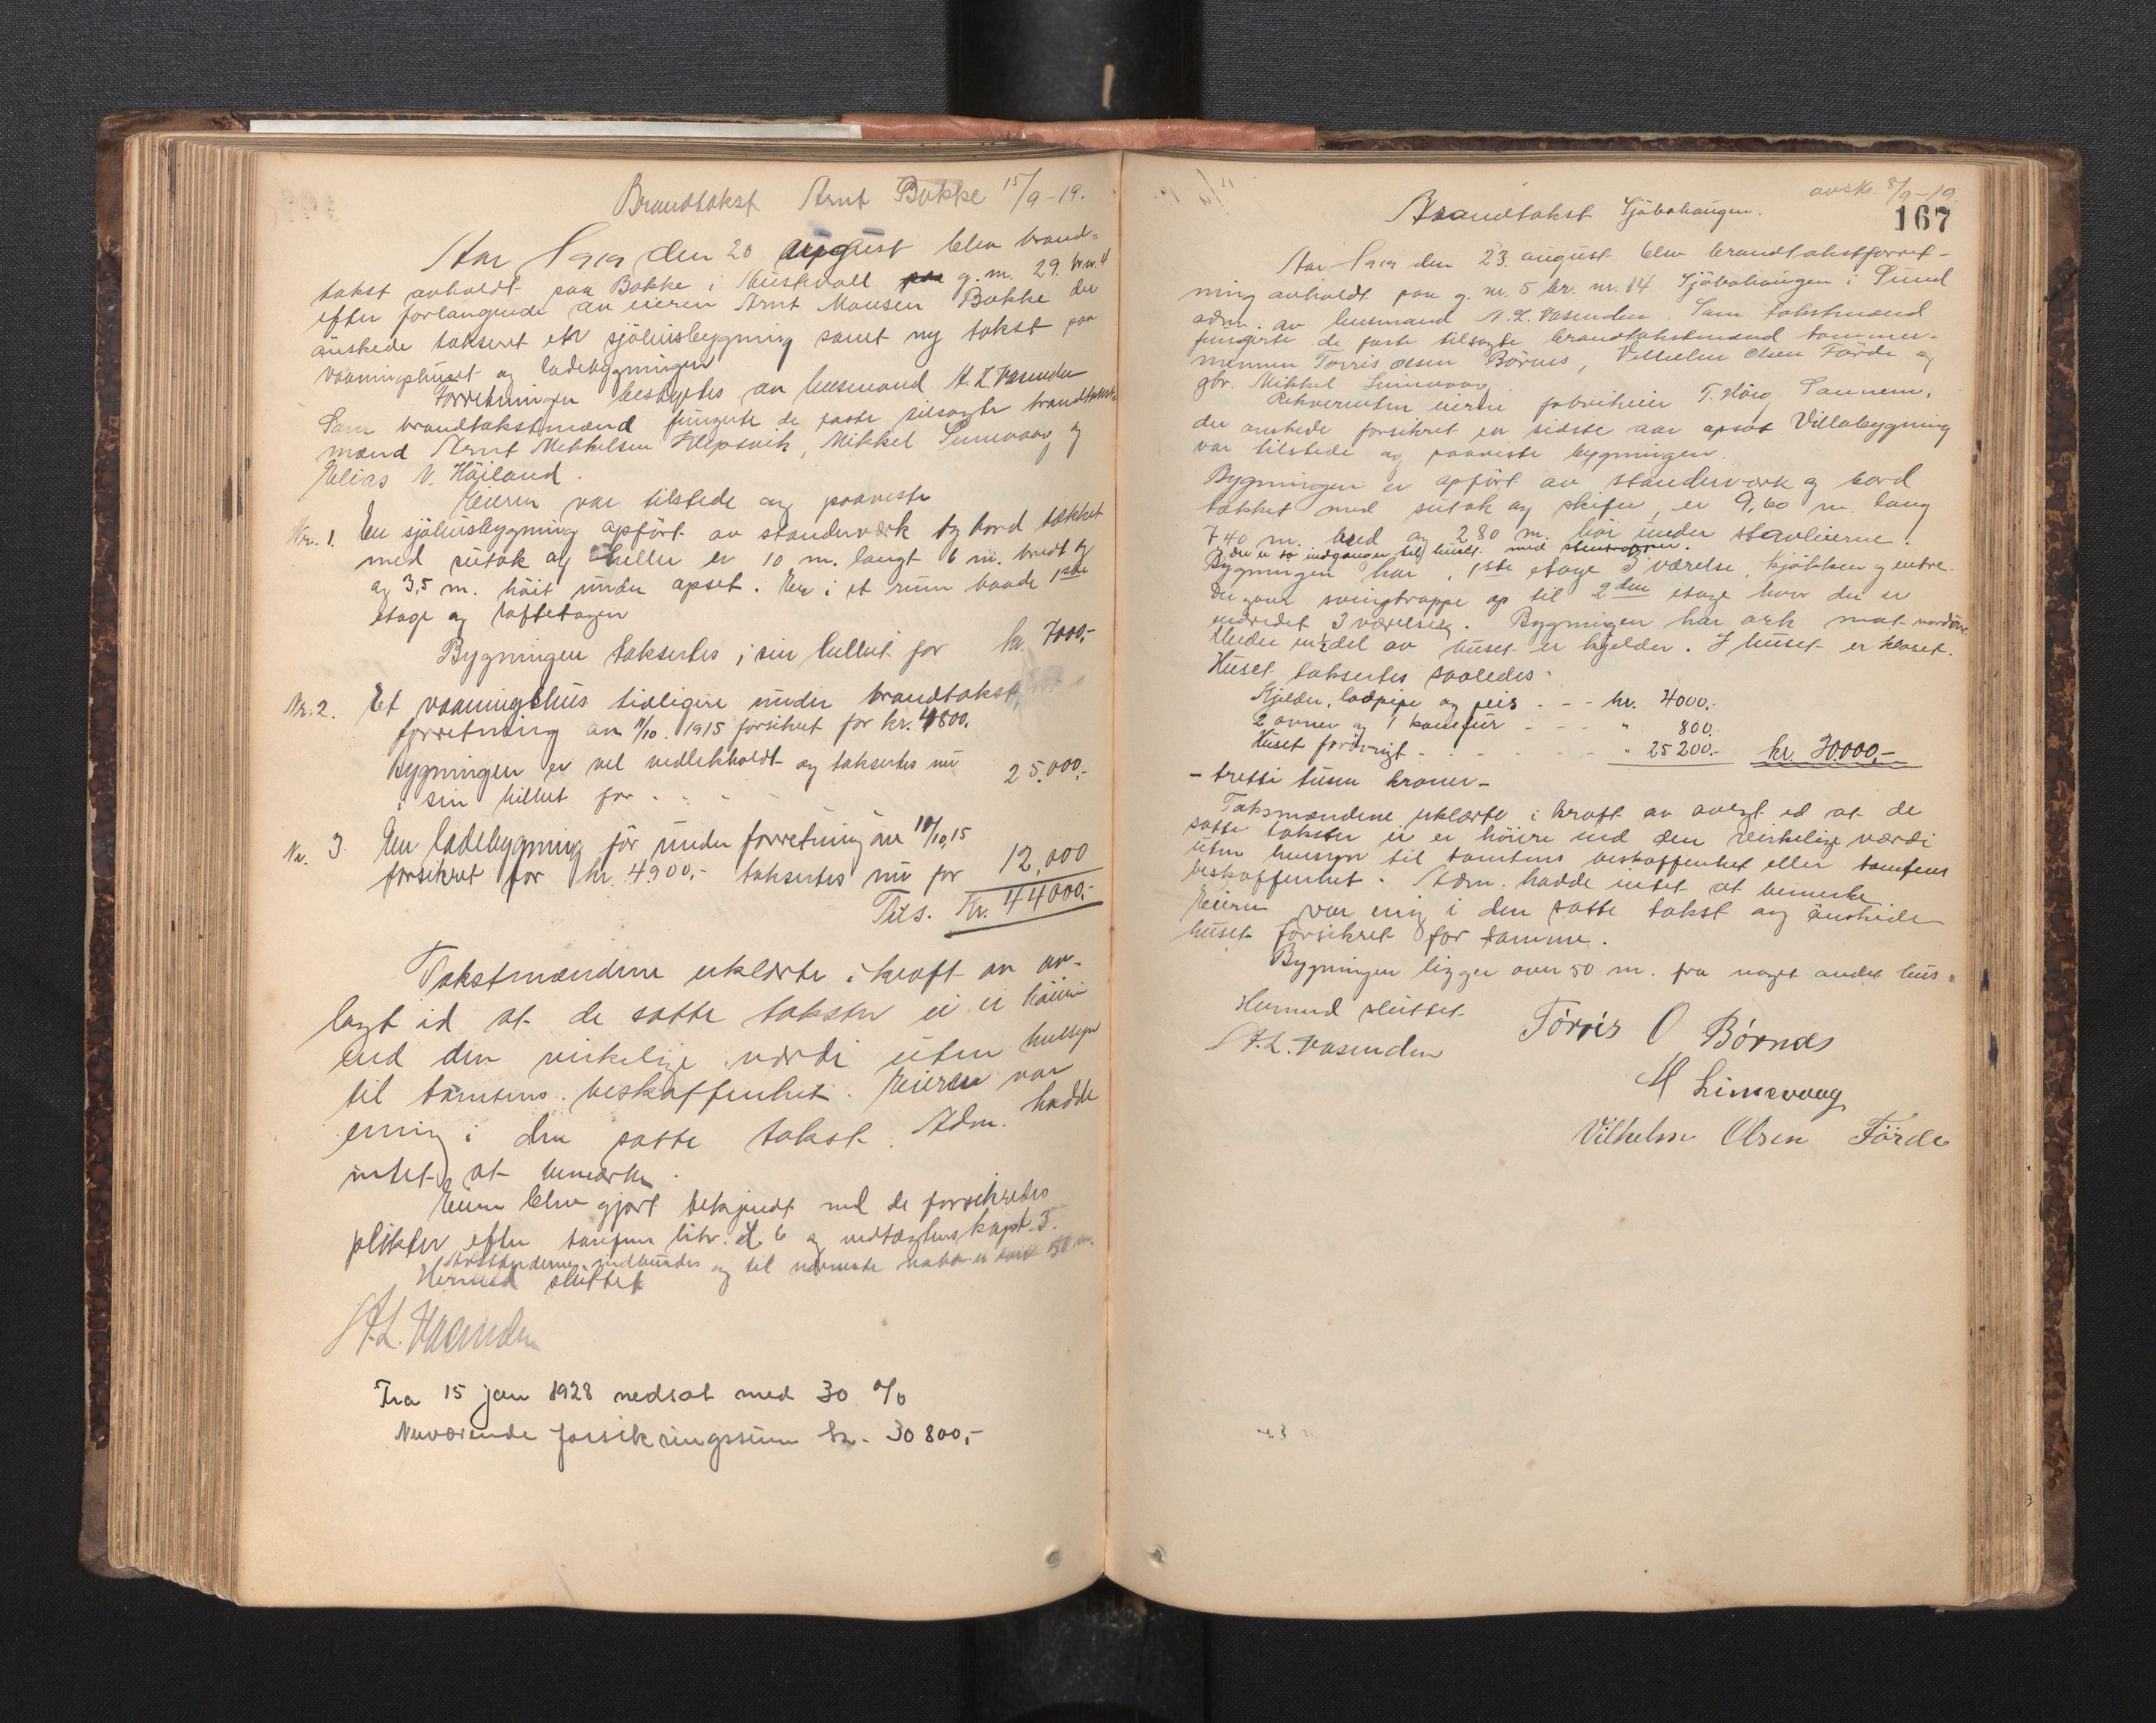 Brandtakst Arnt Bakke 15/9-19.
Aar 1919 den 20 august blev brand=
takst avholdt paa Bakke i Austevoll g.nr. 29. br.nr. 4
efter forlangende av eieren Arnt Monsen Bakke der
önskede taksert en sjöhusbygning samt ny takst paa
vaaningshuset og ladebygningen
Forretningen bestyrtes av lensmand A. L. Vasenden
Som brandtakstmænd fungerte de faste tilsagte brandtakst
mænd Arnt Mikkelsen Mikkel Limevaag og
Elias N. Höiland.
Eieren var tilstede og paaviste
Nr. 1. En sjöhusbygning opfört av standerværk og bord tækket
med sutak og heller er 10 m. langt 6 m. bredt og
og 3,5 m. höit under opset. Er i et rum baade 1ste
etage og loftetagen
Bygningen taksertes i sin helhet for kr. 7000,-
Nr. 2. Et vaaningshus tidligere under brandtakst
forretning av 11/10. 1915 forsikret for kr. 4800.
bygningen er vel vedlikholdt og taksertes nu
i sin helhet for - - - - 25,000,-
Nr. 3 En ladebygning för under forretning av 11/10,15
forsikret for kr. 4900,- taksertes nu for 12,000
Tils. Kr. 44000,-
Takstmændene erklærte i kraft av av-
lagt ed at de satte takster ei er höiere
end den virkelige værdi uten hensyn
til tomtens beskaffenhet. Eieren var
enig i den satte takst. Adm. hadde
intet at bemærke.
Eieren blev gjort bekjendt med de forsikredes
plikter efter tarifens litr. d. 6 og vedtægtens kapt. 3.
Avstanderne indbyrdes og til nærmeste nabo er over 50 m.
Hermed sluttet
A.L. Vasenden
Fra 15 jan 1928 nedsat med 30 %
Nuværende forsikringssum kr. 30800,-
avskr. 8/9-19.
167
Brandtakst Sjöbohaugen.
Aar 1919 den 23. august blev brandtakstforret-
ning avholdt paa g. nr. 5 br. nr. 14 Sjöbohaugen i Sund
adm. av lensmand A. L. Vasenden. Som takstmænd
fungerte de faste tilsagte brandtakstmænd tömmer-
mennen Torris Olsen Börnes, Vilhelm Olsen Förde og
gbr. Mikkel Limevaag
Rekvirenten eieren fabrikeier T. Höie,
der önskede forsikret en sidste aar opsat Villabygning
var tilstede og paaviste bygningen.
Bygningen er opfört av standerværk og bord
tækket med sutak og skifer, er 9,60 m. lang
7,40 m. bred og 280 m. höi under stavleierne.
der er to indganger til huset med stentrapper.
Bygningen har i 1ste etage 3 værelse, kjökken og entre.
Der gaar svingtrappe op til 2den etage hvor der er
indredet 3 værelser. Bygningen har ark mot nordöst
Under en ½ del av huset er kjelder. I huset er kloset.
Huset taksertes saaledes:
Kjelder, ladpipe og peis - - - kr. 4000.-
2 ovner og 1 komfür - - - " 800.-
Huset forövrigt - - - - - " 25200.- kr. 30.000,-
- tretti tusen kroner -
Taksmændene erklærte i kraft av avlagt ed at de
satte takster ei er höiere end den virkelige værdi
uten hensyn til tomtens beskaffenhet eller tomtens
beskaffenhet. Adm. hadde intet at bemerke
Eieren var enig i den satte takst og önskede
huset forsikret for samme.
Bygningen ligger over 50 m. fra noget andet hus.
Hermed sluttet
A.L. Vasenden Törris O Børnes
M Limevaag
Vilhelm Olsen Förde